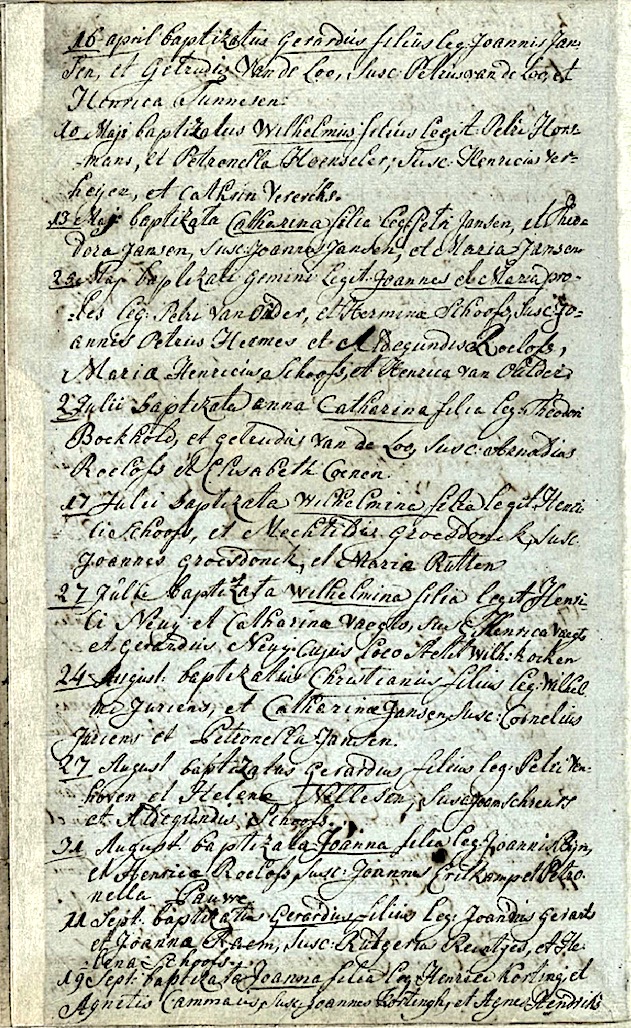 16 april baptizatus Gerardus filius leg: Joannis Jan-
sen, et Getrudis Van de Loo, Susc: Petrus van de Loo, et
Henrica Tunnesen.
10 Maji baptizatus Wilhelmus filius legit: Petri Hons-
mans, et Petronella Hoenseler, Susc: Henricus Ver-
heijen, et Cathrin Vererchs.
13 Maji baptizata Catharina filia leg: Petri Jansen, et Theo
dora Jansen, Susc: Joannes Jansen, et Maria Jansen
25 Maji baptizati gemini legit: Joannes et Maria pro-
-les leg: Petri Van Oulder, et Hermina Schoofs, Susc: Jo-
annis Petrus Hermes et Aldegundis Roelofs,
Maria Henricus Schoofs, et Henrica van Oulder
2 Julii baptizata anna Catharina filia leg: Theodori
Bockhold, et getrudis van de Loo, Susc: Arnoldus
Roelofs et Elisabeth Coenen.
17 Julii baptizata Wilhelmina filia legit: Henri
ci Schoofs, et Mechtildis Groesdonck, Susc
Joannes Groesdonck, et Maria Rutten
27 Julii baptizata Wilhelmina filia legit: Henri-
ci Neuy et Catharina Vaegts, Susc: Henrica Vaegts
et gerardus Neuy, Cujus loco stetit Wilh: Kocken
24 August: baptizatus Christianus filius leg: Wilhel
mi Juriens, et Catharina Jansen, Susc: Cornelius
Juriens et Petronella Jansen.
27 August baptizatus Gerardus filius leg: Petri Ven-
hoven et Helena Nillesen, Susc: Joan Schreurs
et Aldegundis Schoofs.
31 August: baptizata Joanna filia leg: Joannis
et Henrica Roelofs, Susc: Joannes et Petro
nella Pauwe
11 Sept: baptizatus Gerardus filius leg: Joannis Gerarts
et Joanna Raem, Susc: Rutgerus Reintjes, et He-
lena Schoofs.
19 Sept: baptizata Joanna filia leg: Henrici Korting, et
Agnetis Cammans, Susc: Joannes Kortingh, et Agnes Hendriks